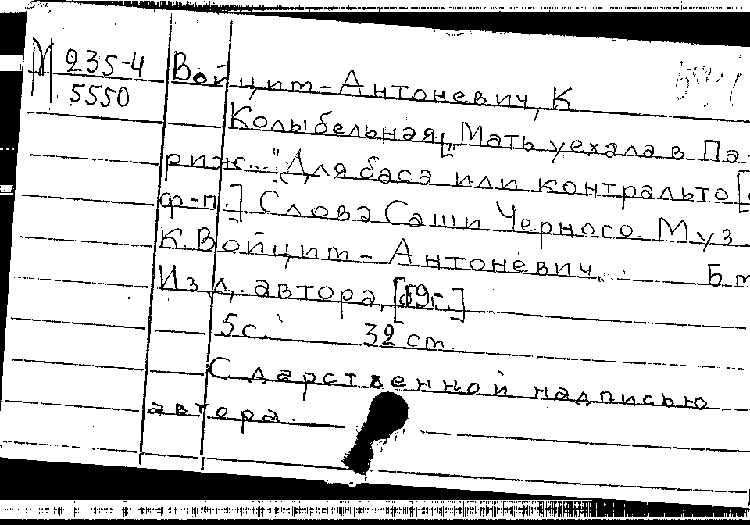 М 235-4 Войцит-Антоневич, К
5550
Колыбельная „Мать уехала в Па-
риж..." Для баса или контральто [с
ф-п.] Слова Саши Черного. Муз.
К. Войцит-Антоневич. Б.м.
Изд. автора,
5 с. 32 см
С дарственной надписью
автора.